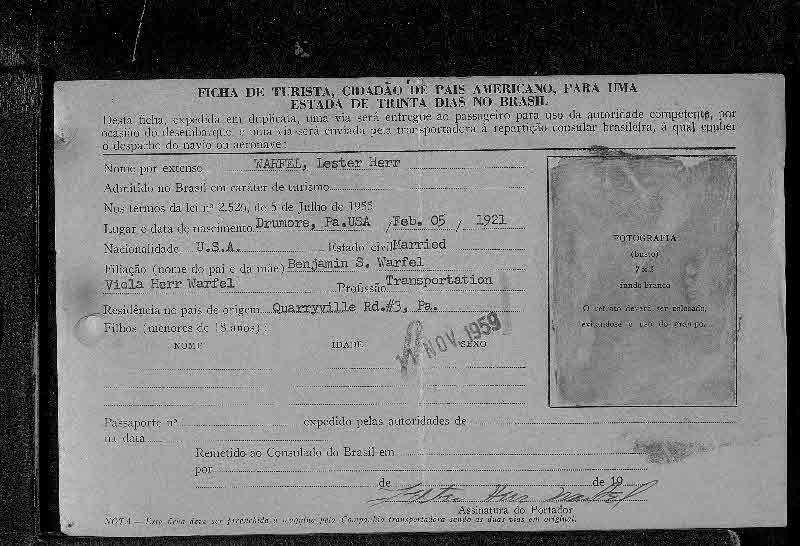 FICHA DE TURISTA, CIDADÃO DE PAIS AMERICANO, PARA UMA
ESTADA DE TRINTA DIAS NO BRASIL
Desta ficha, expedida em duplicata, uma via será entregue ao passageiro para uso da autoridade competente, por
ocasião do desembarque, e uma via será enviada pela transportadora à repartição consular brasileira, à qual couber
o despacho do navio ou aeronave:
Nome por extenso WARFEL, Lester Herr
Admitido no Brasil em caráter de turismo
Nos termos da lei nº 2.526, de 5 de Julho de 1955
Lugar e data de nascimento Drumore, Pa.USA / Feb. 05 / 1921
Nacionalidade U.S.A. Estado civil Married
Filiação (nome do pai e da mãe) Benjamin S. Warfel
Viola Herr Warfel Profissão Transportation
Residência no país de origem Quarryville Rd.#3, Pa.
Filhos (menores de 18 anos):
NOME IDADE SEXO
NOV. 1959
FOTOGRAFIA
(busto)
7 x 5
fundo branco
O retrato deverá ser colocado,
evitando-se o uso do grampo.
Passaporte nº expedido pelas autoridades de
na data
Remetido ao Consulado do Brasil em
por
de de 19
Lester Herr Warfel
Assinatura do Portador
NOTA — Esta ficha deve ser preenchida à máquina pela Companhia transportadora sendo as duas vias em original.